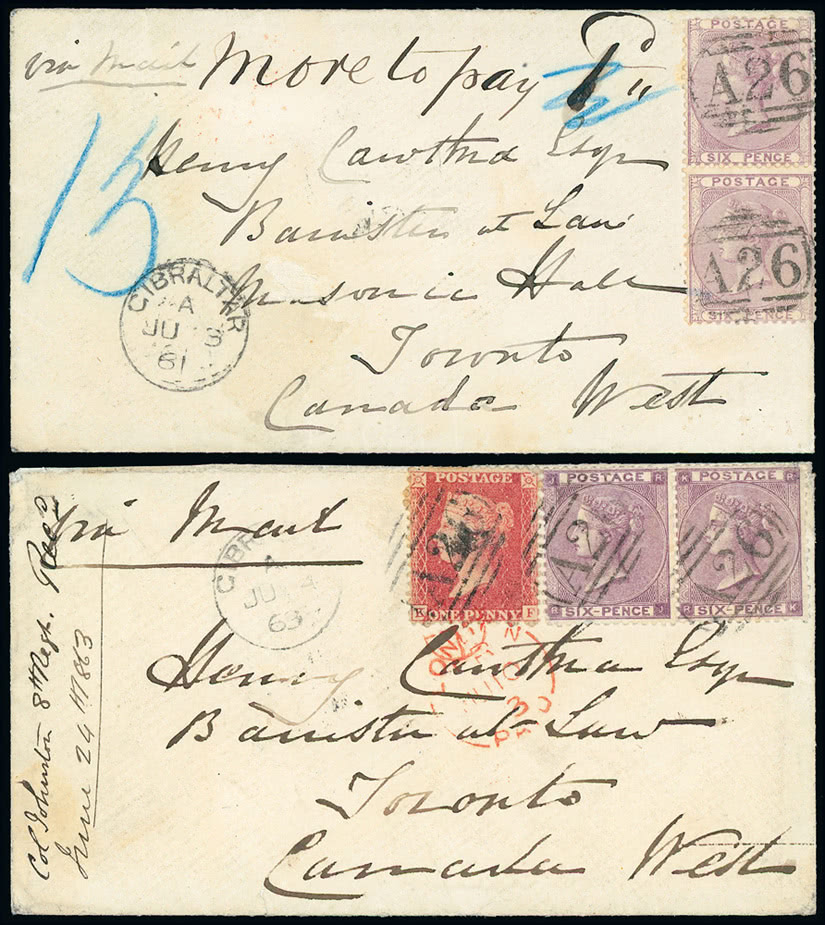 via Mail More to pay 1d
POSTAGE
A26
SIX PENCE
POSTAGE
A26
SIX PENCE
13
Henry Cawthra Esqr
Barrister at Law
Masonic Hall
Toronto
Canada West
GIBRALTAR
A
JU 3
61
via Mail
GIBR
A
JU 4
63
POSTAGE
A26
K F
ONE PENNY
J R
POSTAGE
A26
R J
SIX-PENCE
K R
POSTAGE
A26
R K
SIX-PENCE
LONDON
PAID
Henry Cawthra Esqr
Barrister at-Law
Toronto
Canada West
Col Johnston 8th Regt. Recd
June 24th 1863